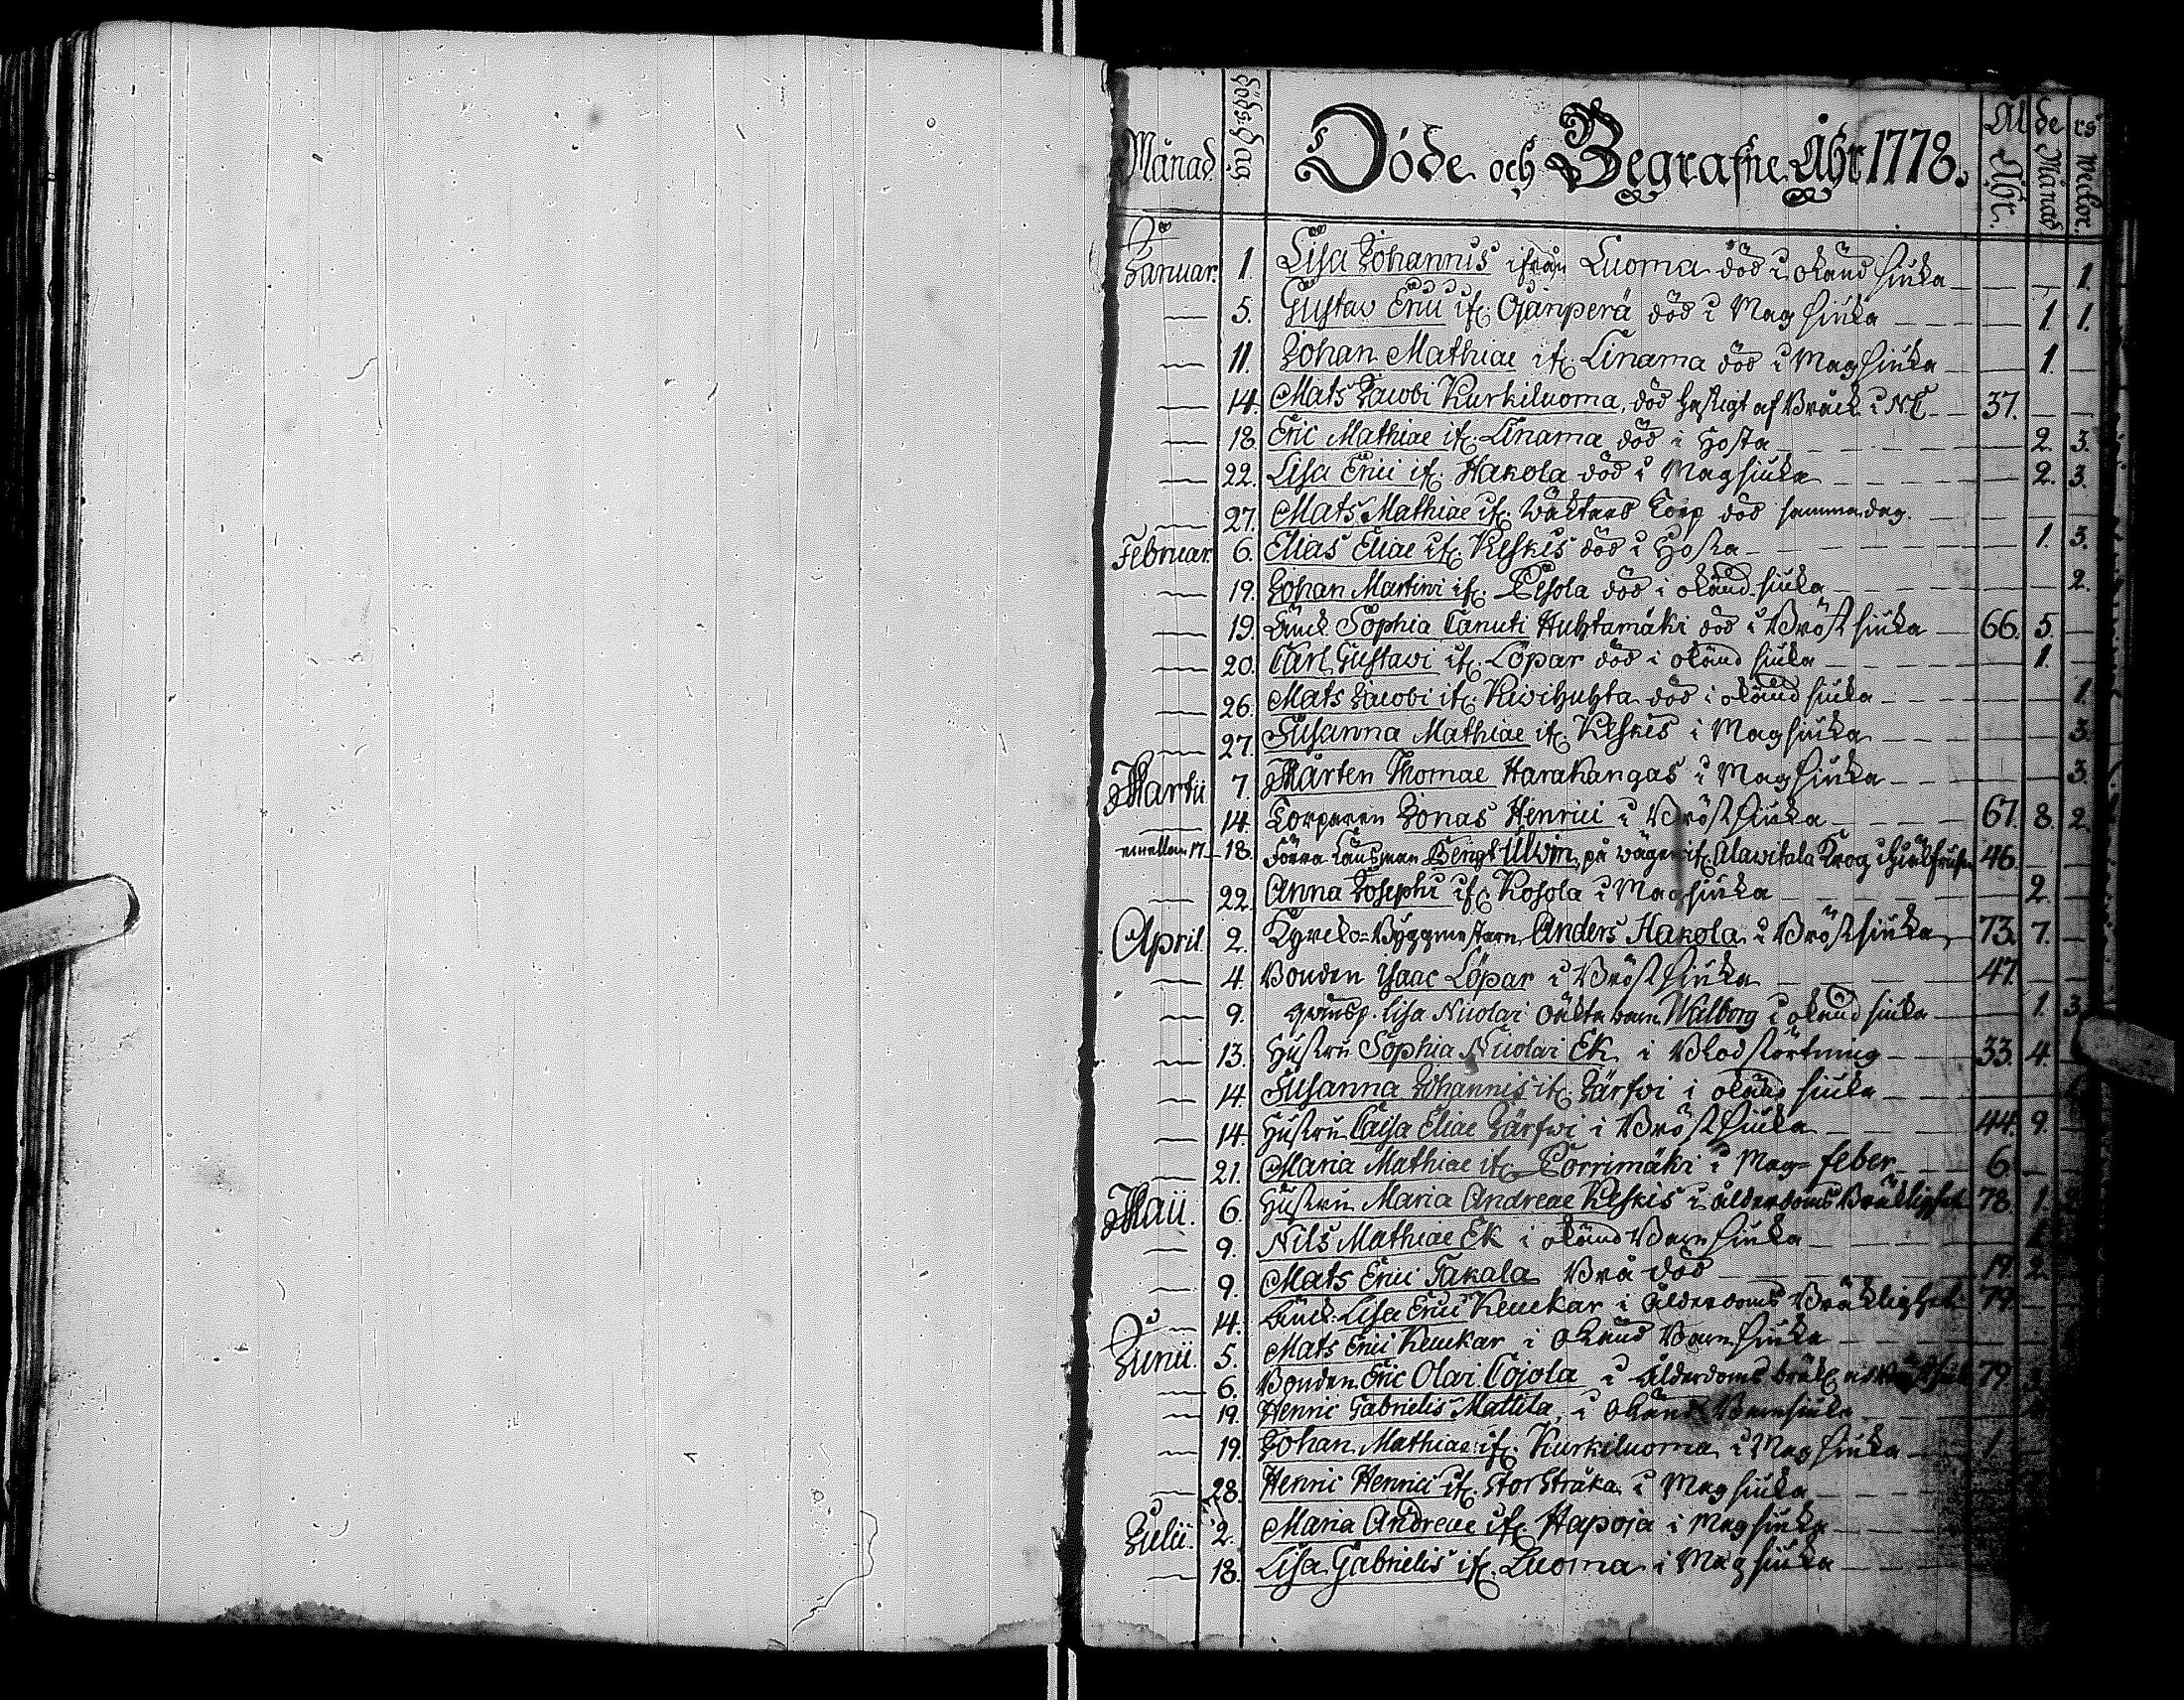 Månad. Döds Dag. Döde och Begrafne Åhr 1778. Ålders Åhr. Månad Wekor.
Januar. 1. Lisa Johannis ifrån Luoma död i okänd siuka 1.
5. Gustav Erici if. Ojanperä död i Mag siuka 1. 1.
11. Johan Mathiae if. Linama död i Mag siuka 1.
14. Mats Jacobi Kurkiluoma, död hastigt af Bråck 37.
18. Eric Mathiae if. Linama död i Hosta 2. 3.
22. Lisa Erici if. Hakola död i Mag siuka 2. 3.
27. Mats Mathiae if. Torp död samma dag.
Februar. 6. Elias Eliae if. Keskis död i Hosta 1. 3.
19. Johan Martini if. Pesola död i okänd siuka 2.
19. Änck. Sophia Canuti Huhtamäki död i Bröst siuka 66. 5.
20. Carl Gustavi if. Löpar död i okänd siuka 1.
26. Mats Jacobi if. Kiwihuhta död i okänd siuka 1.
27. Susanna Mathiae if. Keskis i Mag siuka 3.
Martii 7. Mårten Thomae Harakangas i Mag siuka 3.
14. Torparen Jonas Henrici i Bröst siuka 67. 8. 2.
emellan 17 18. Förra Länsman Bengt Ulvin, på wägen if. Alawitala Krog ihielfrusen 46.
22. Anna Josephi if. Kosola i Mag siuka 2.
April. 2. Kyrcko-Byggmestarn Anders Hakola i Bröst siuka 73. 7.
4. Bonden Isaac Löpar i Bröst siuka 47.
9. Lisa Nicolai oäkta barn Walborg i okänd siuka 1. 3.
13. Hustru Sophia Nicolai Ek i Blodstörtning 33. 4.
14. Susanna Johannis if. Järfwi i okänd siuka
14. Hustru Caisa Eliae Järfwi i Bröst siuka 44. 9.
21. Maria Mathiae if. Porrimäki i Mag-feber 6.
Maii. 6. Hustru Maria Andreae Keskis i ålderdoms Bräklighet 78. 1.
9. Nils Mathiae Ek i okänd Barn siuka
9. Mats Erici Takala Brå död 19. 2.
14. Änck. Lisa Erici Keuckar i ålderdoms Bräklighet 79.
Junii. 5. Mats Erici Keuckar i okänd Barn siuka
6. Bonden Eric Olai Cojola i ålderdoms bräkl. 79.
19. Henric Gabrielis Mattila, i okänd Barnsiuka
19. Johan Mathiae if. Kurkiluoma i Mag siuka 1.
28. Henric Henrici if. Storstråka i Mag siuka
Julii. 2. Maria Andreae if. Hapoja i Mag siuka
18. Lisa Gabrielis if. Luoma i Mag siuka